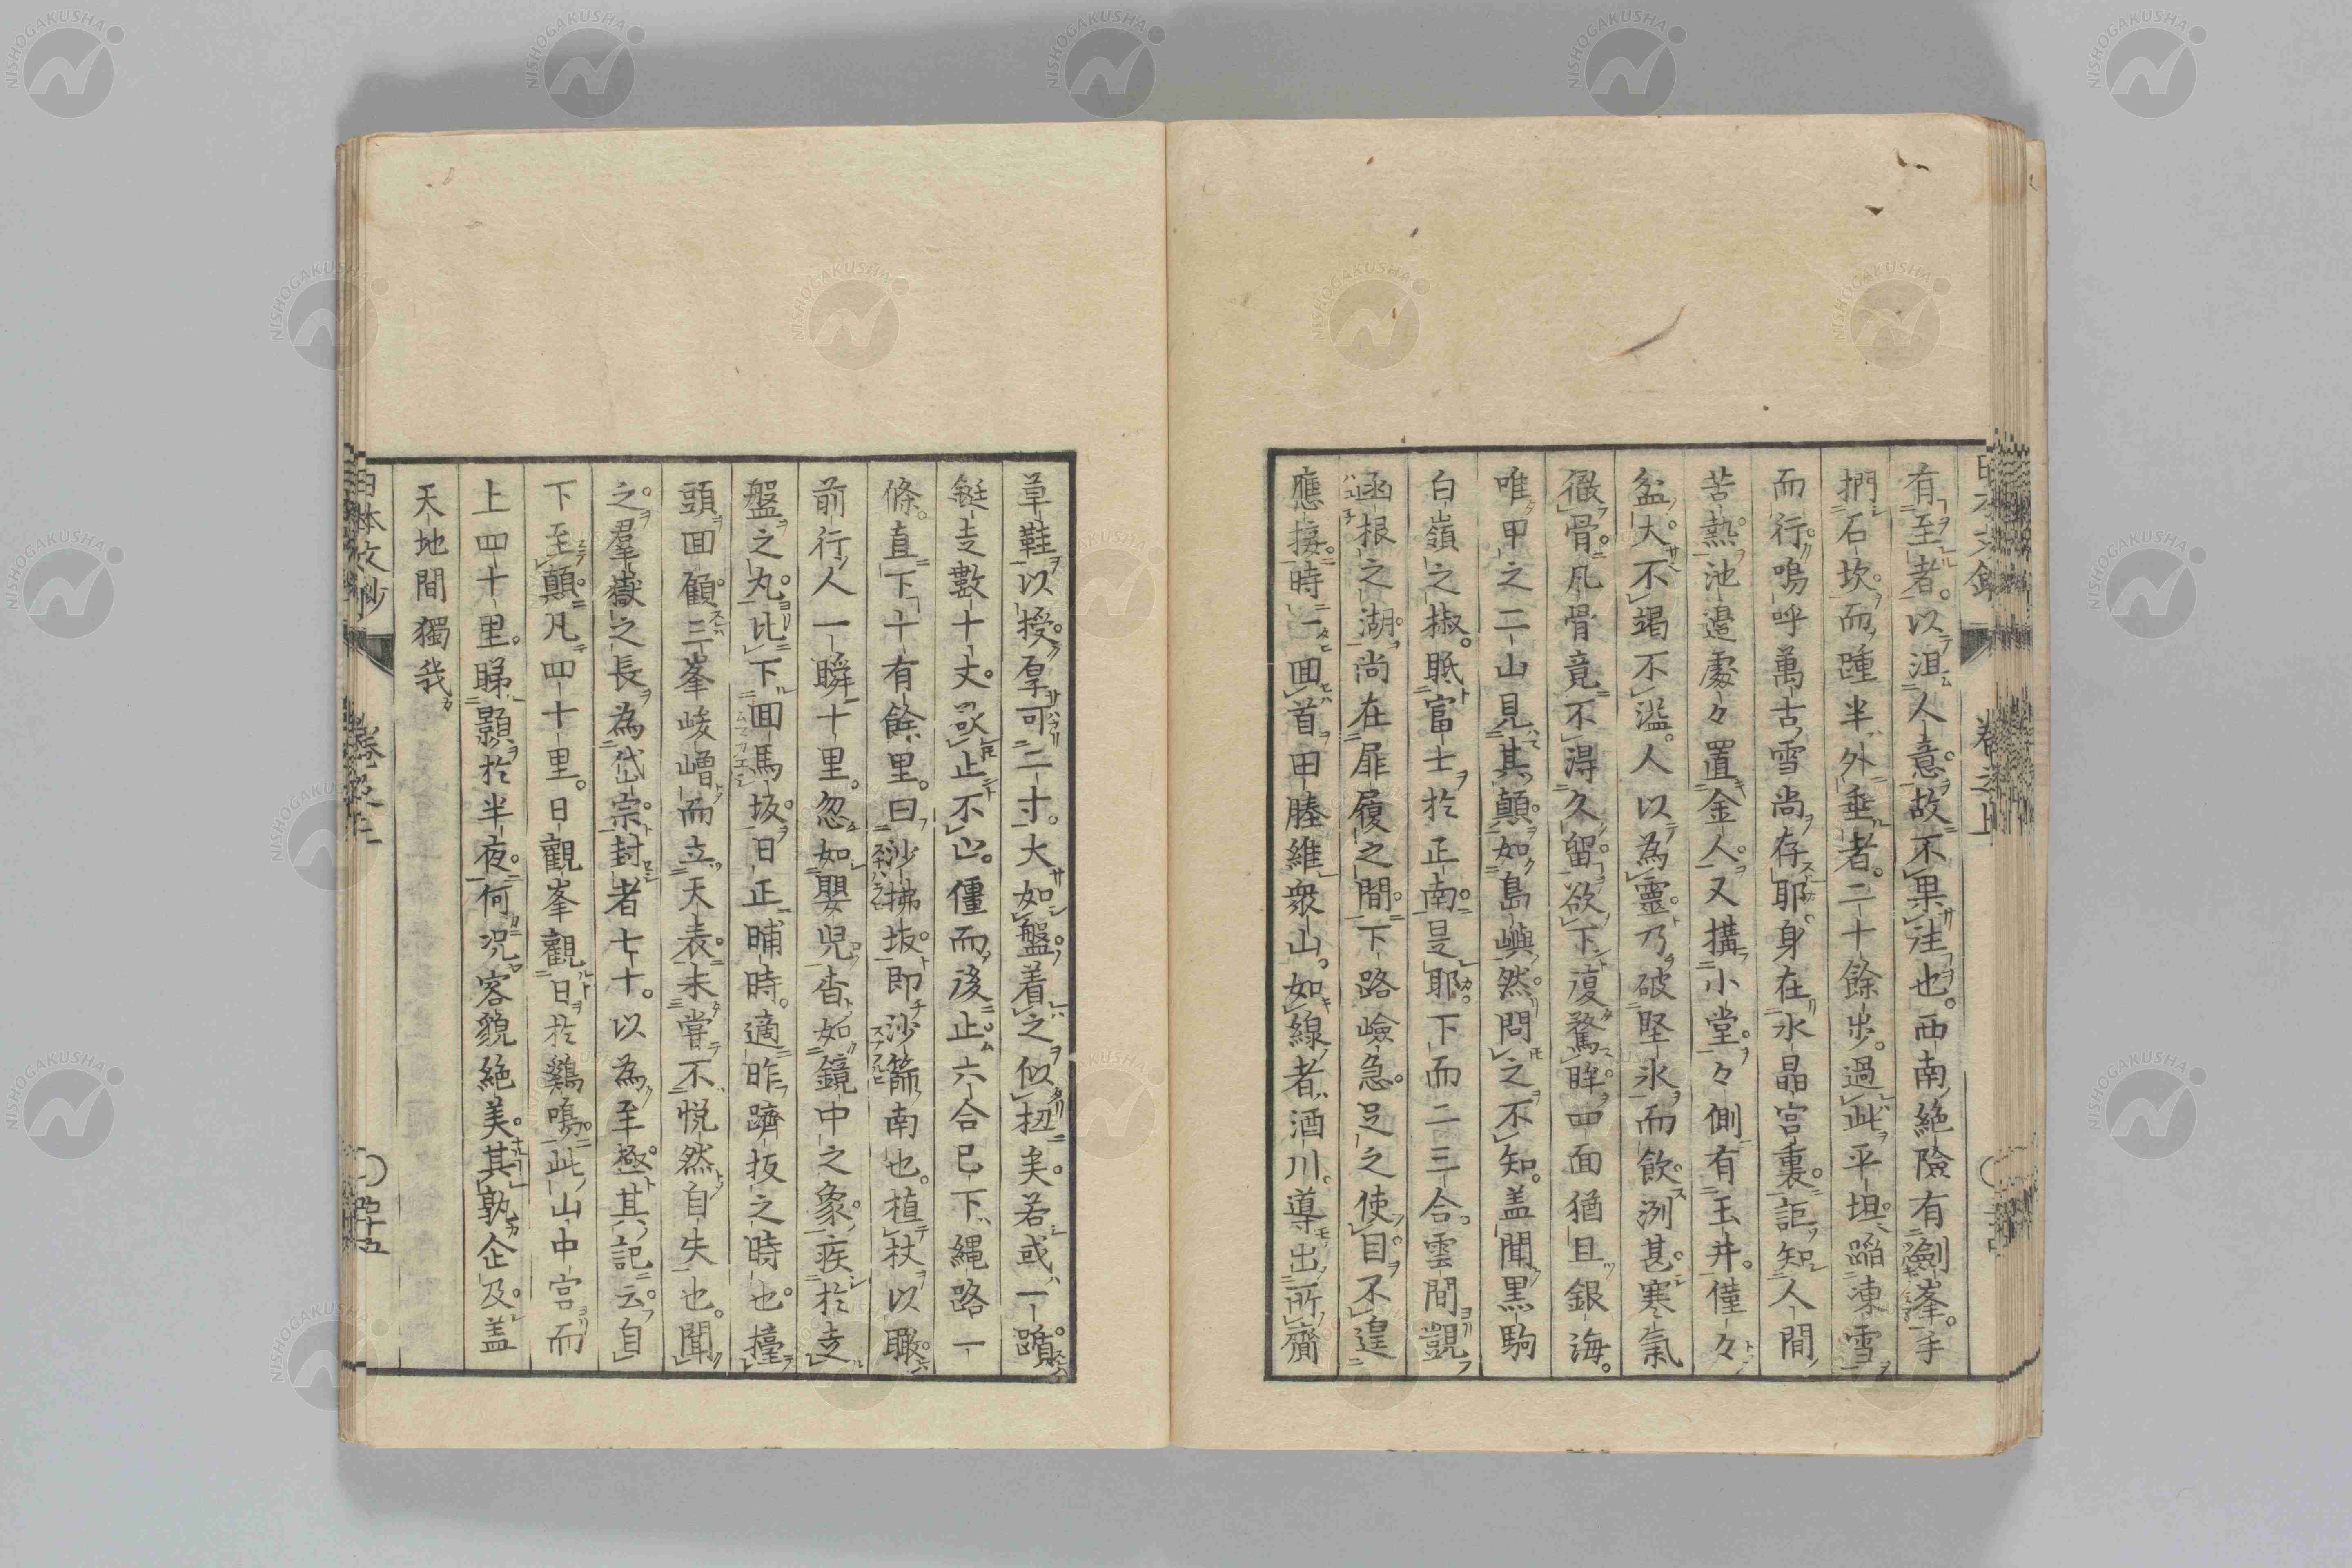 有至者。以沮人意。故不果往也。西南絶險有劍峯。手
捫石坎。而踵半外垂者。二十餘步。過此平坦。蹈凍雪
而行。嗚呼萬古雪尚存耶。身在氷晶宮裏。詎知人間
苦熱。池邊處々置金人。又搆小堂。々側有玉井。僅々
盆大。不竭不溢。人以為靈。乃破堅氷而飲。洌甚。寒氣
徹骨。凡骨竟不得久留。欲下復騖眸。四面猶且銀海。
唯甲之二山見其顛。如島嶼然。問之不知。盖聞黑駒
白嶺之椒。眂富士於正南。是耶。下而二三合。雲間覬
函根之湖。尚在扉履之間。下路嶮急。足之使目不遑
應接。時一回首。田塍維衆山。如線者酒川。導出所齎
草鞋以授。厚可二寸。大如盤。着之似杻矣。若或一蹟
蜓走數十丈。欲止不止。僵而後止。六合已下繩路一
條。直下十有餘里。曰沙拂坂。即沙篩南也。植杖以瞰
前行人一瞬十里。忽如嬰児。杳如鏡中之象。疾於走
盤之丸。比下回馬坂。日正晡時。適昨躋坂之時也。擡
頭回顧。三峯崚嶒而立天表。未嘗不悦然自失也。聞
之。羣嶽之長為岱宗。封者七十。以為至極。其記云。自
下至顛。凡四十里。日觀峯觀日於鷄鳴。此山中宮而
上四十里。睇顥於半夜。何況容貌絶美。其孰企及。盖
天地間獨我
日本文鈔
卷之上
四十五